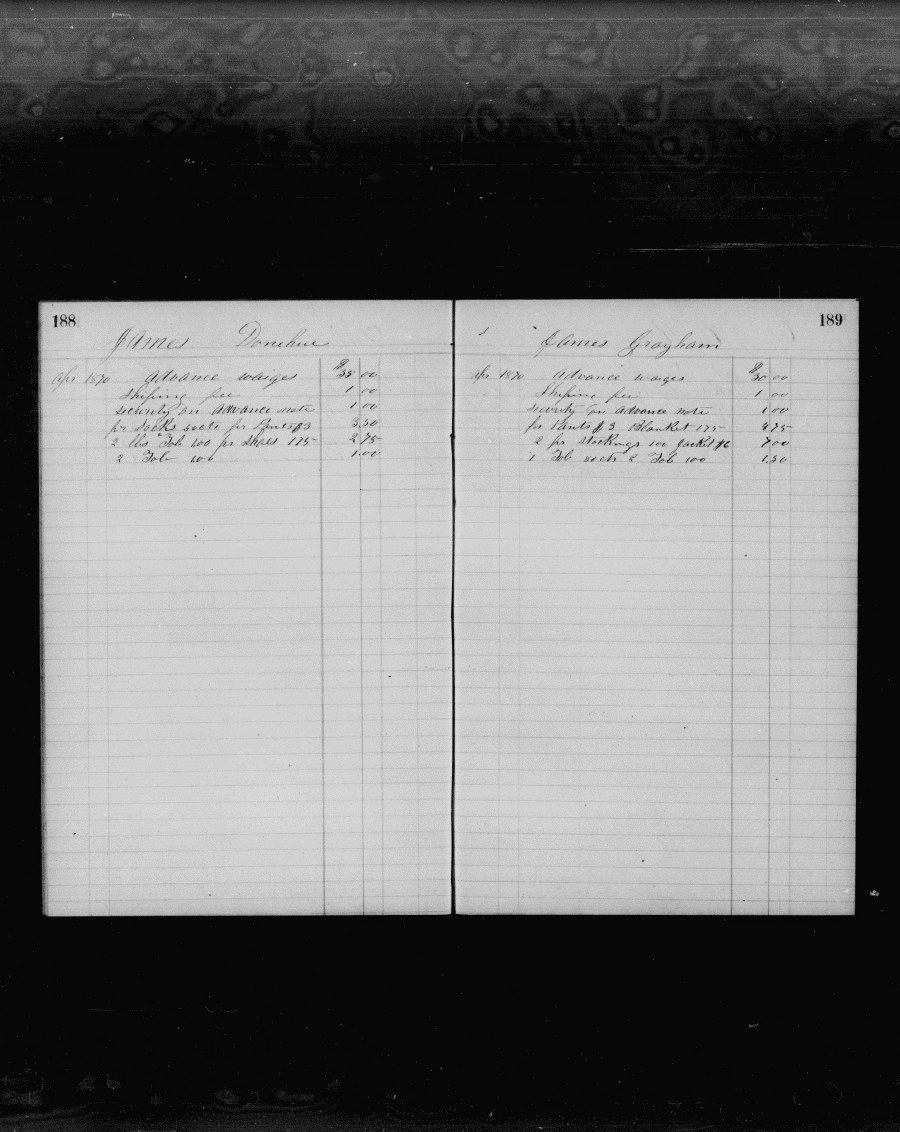 188
James Donehue
Apr 1870 Advance waiges $35 00
Shiping fee 1 00
security on Advance note 1 00
pr Socks 50cts pr Pants $3 3.50
2 lbs Tob 100 pr Shoes 175 2.75
2 Tob 100 1.00
189
James Grayham
Apr 1870 Advance wages $30 00
Shiping fee 1 00
security on Advance note 1 00
pr Pants $3 Blanket 175 4 75
2 pr Stockings 100 Jacket $6 7 00
1 Tob 50cts 2 Tob 100 1.50